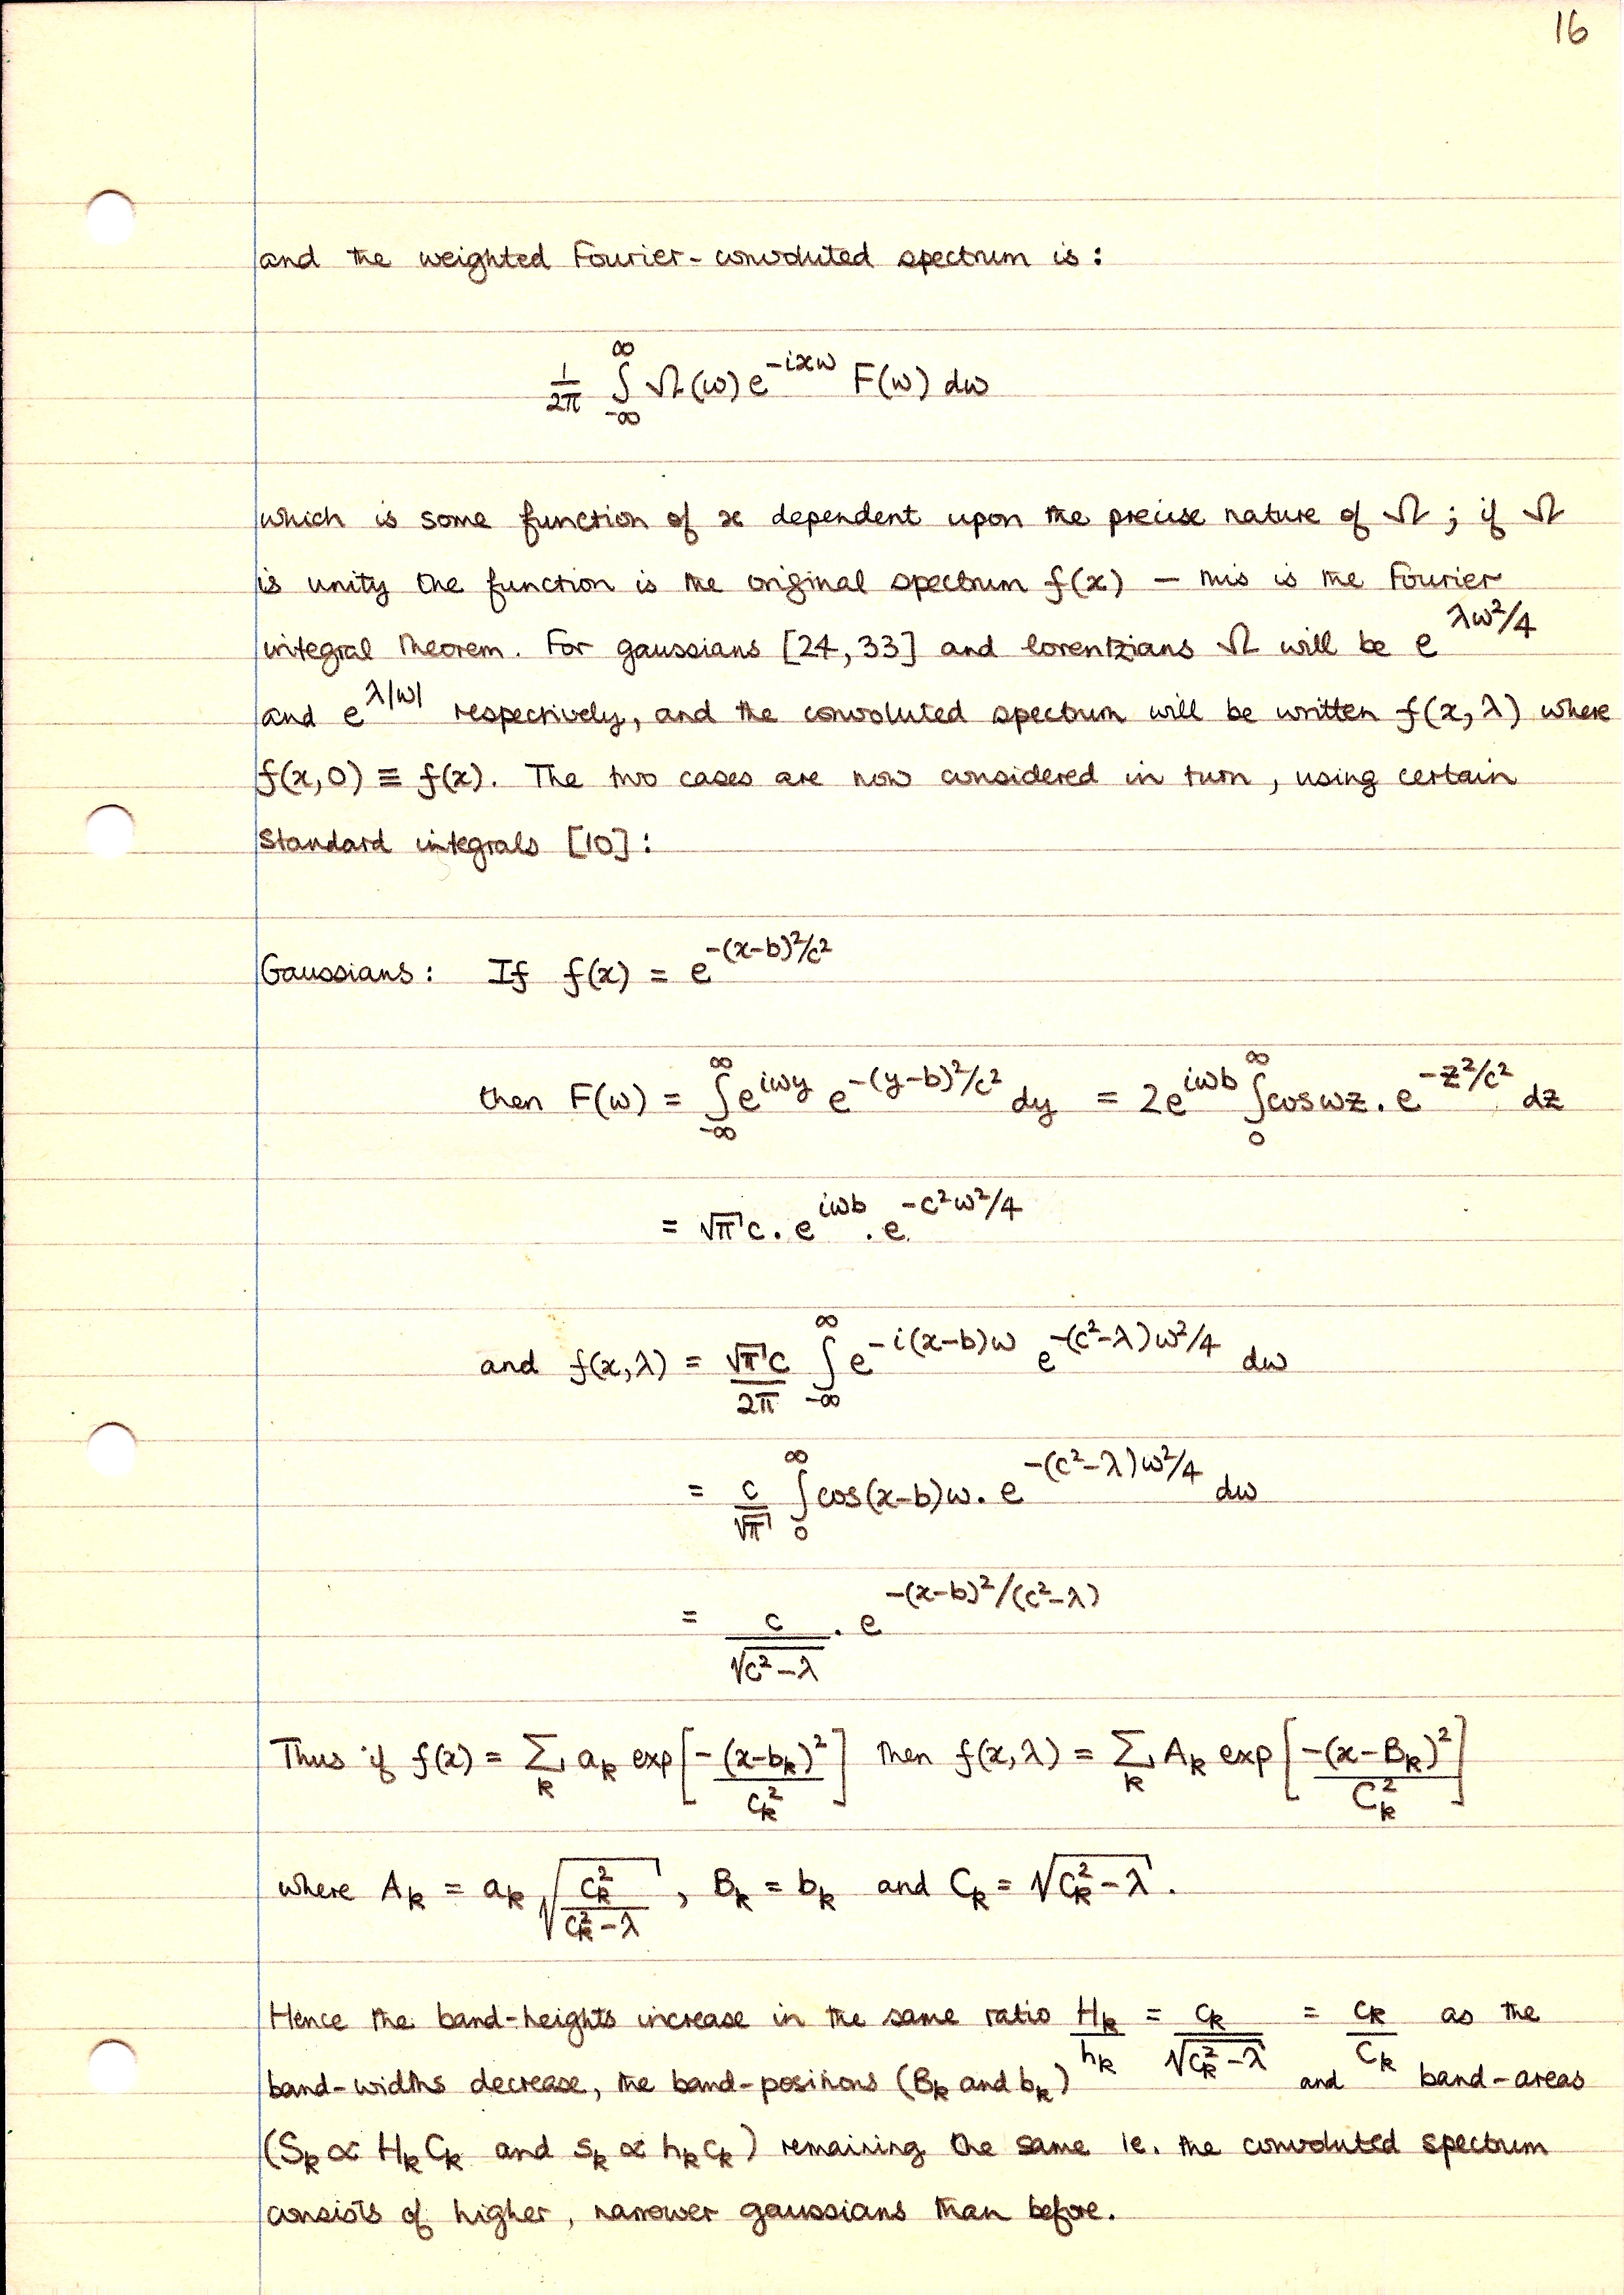 16
and the weighted Fourier-convoluted spectrum is:
1/2π ∫_{-∞}^{∞} Ω(ω) e^{-ixω} F(ω) dω
which is some function of x dependent upon the precise nature of Ω ; if Ω
is unity the function is the original spectrum f(x) – this is the Fourier
integral theorem. For gaussians [24, 33] and lorentzians Ω will be e^{λω²/4}
and e^{λ|ω|} respectively, and the convoluted spectrum will be written f(x, λ) where
f(x, 0) ≡ f(x). The two cases are now considered in turn, using certain
standard integrals [10]:
Gaussians: If f(x) = e^{-(x-b)²/c²}
then F(ω) = ∫_{-∞}^{∞} e^{iωy} e^{-(y-b)²/c²} dy = 2e^{iωb} ∫_{0}^{∞} cos ωz . e^{-z²/c²} dz
= √π c . e^{iωb} . e^{-c²ω²/4}
and f(x, λ) = √π c/2π ∫_{-∞}^{∞} e^{-i(x-b)ω} e^{-(c²-λ)ω²/4} dω
= c/√π ∫_{0}^{∞} cos(x-b)ω . e^{-(c²-λ)ω²/4} dω
= c/√(c²-λ) . e^{-(x-b)²/(c²-λ)}
Thus if f(x) = Σ_k a_k exp[-(x-b_k)²/c_k²] then f(x, λ) = Σ_k A_k exp[-(x-B_k)²/C_k²]
where A_k = a_k √(c_k²/(c_k²-λ)), B_k = b_k and C_k = √(c_k²-λ).
Hence the band-heights increase in the same ratio H_k/h_k = c_k/√(c_k²-λ) = c_k/C_k as the
band-widths decrease, the band-positions (B_k and b_k) and band-areas
(S_k ∝ H_k C_k and s_k ∝ h_k c_k) remaining the same ie. the convoluted spectrum
consists of higher, narrower gaussians than before.